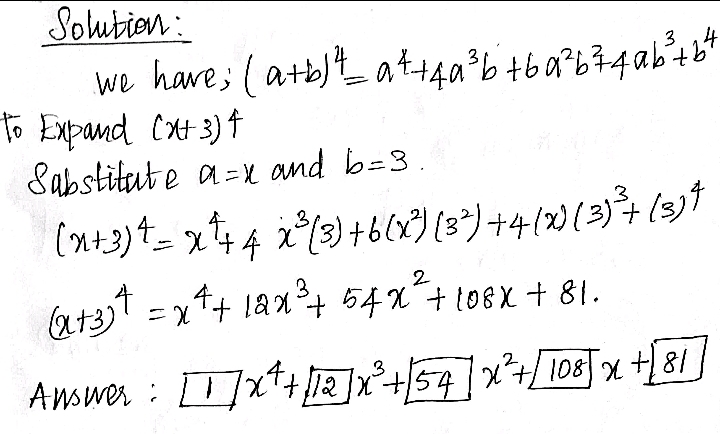 Solution:
we have; (a+b)^4 = a^4+4a^3b+6a^2b^2+4ab^3+b^4
To Expand (x+3)^4
Sabstitute a=x and b=3.
(x+3)^4 = x^4+4 x^3(3)+6(x^2)(3^2)+4(x)(3)^3+(3)^4
(x+3)^4 = x^4+ 12x^3+ 54x^2+108x + 81.
Answer : 1 x^4+ 12 x^3+ 54 x^2+ 108 x + 81